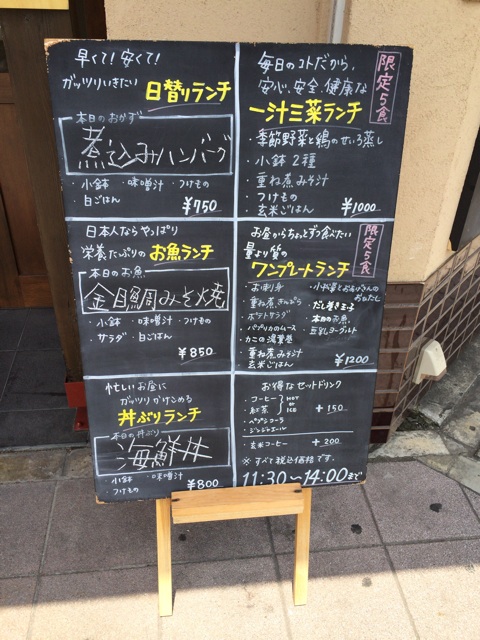 早くて!安くて!
ガッツリいきたい
日替りランチ
本日のおかず
煮込みハンバーグ
・小鉢 ・味噌汁 ・つけもの
・白ごはん
¥750
日本人ならやっぱり
栄養たっぷりのお魚ランチ
本日のお魚
金目鯛みそ焼
・小鉢 ・味噌汁 ・つけもの
・サラダ ・白ごはん
¥850
忙しいお昼に
ガッツリかけこめる
丼ぶりランチ
本日の丼ぶり
海鮮丼
・小鉢 ・味噌汁
・つけもの
¥800
毎日のコトだから、
安心、安全、健康な
限定5食
一汁三菜ランチ
・季節野菜と鶏のせいろ蒸し
・小鉢2種
・重ね煮みそ汁
・つけもの
・玄米ごはん
¥1000
お昼からちょっとずつ食べたい
量より質の
限定5食
ワンプレートランチ
・お刺身
・重ね煮きんぴら
・ポテトサラダ
・パプリカのムース
・カニの湯葉巻
・重ね煮みそ汁
・玄米ごはん
・だし巻き玉子
・本日のお魚
・豆乳ヨーグルト
¥1200
お得なセットドリンク
・コーヒー
・紅茶
HOT or ICE
・ペプシコーラ
・ジンジャエール
+150
・玄米コーヒー +200
※すべて税込価格です。
11:30〜14:00まで